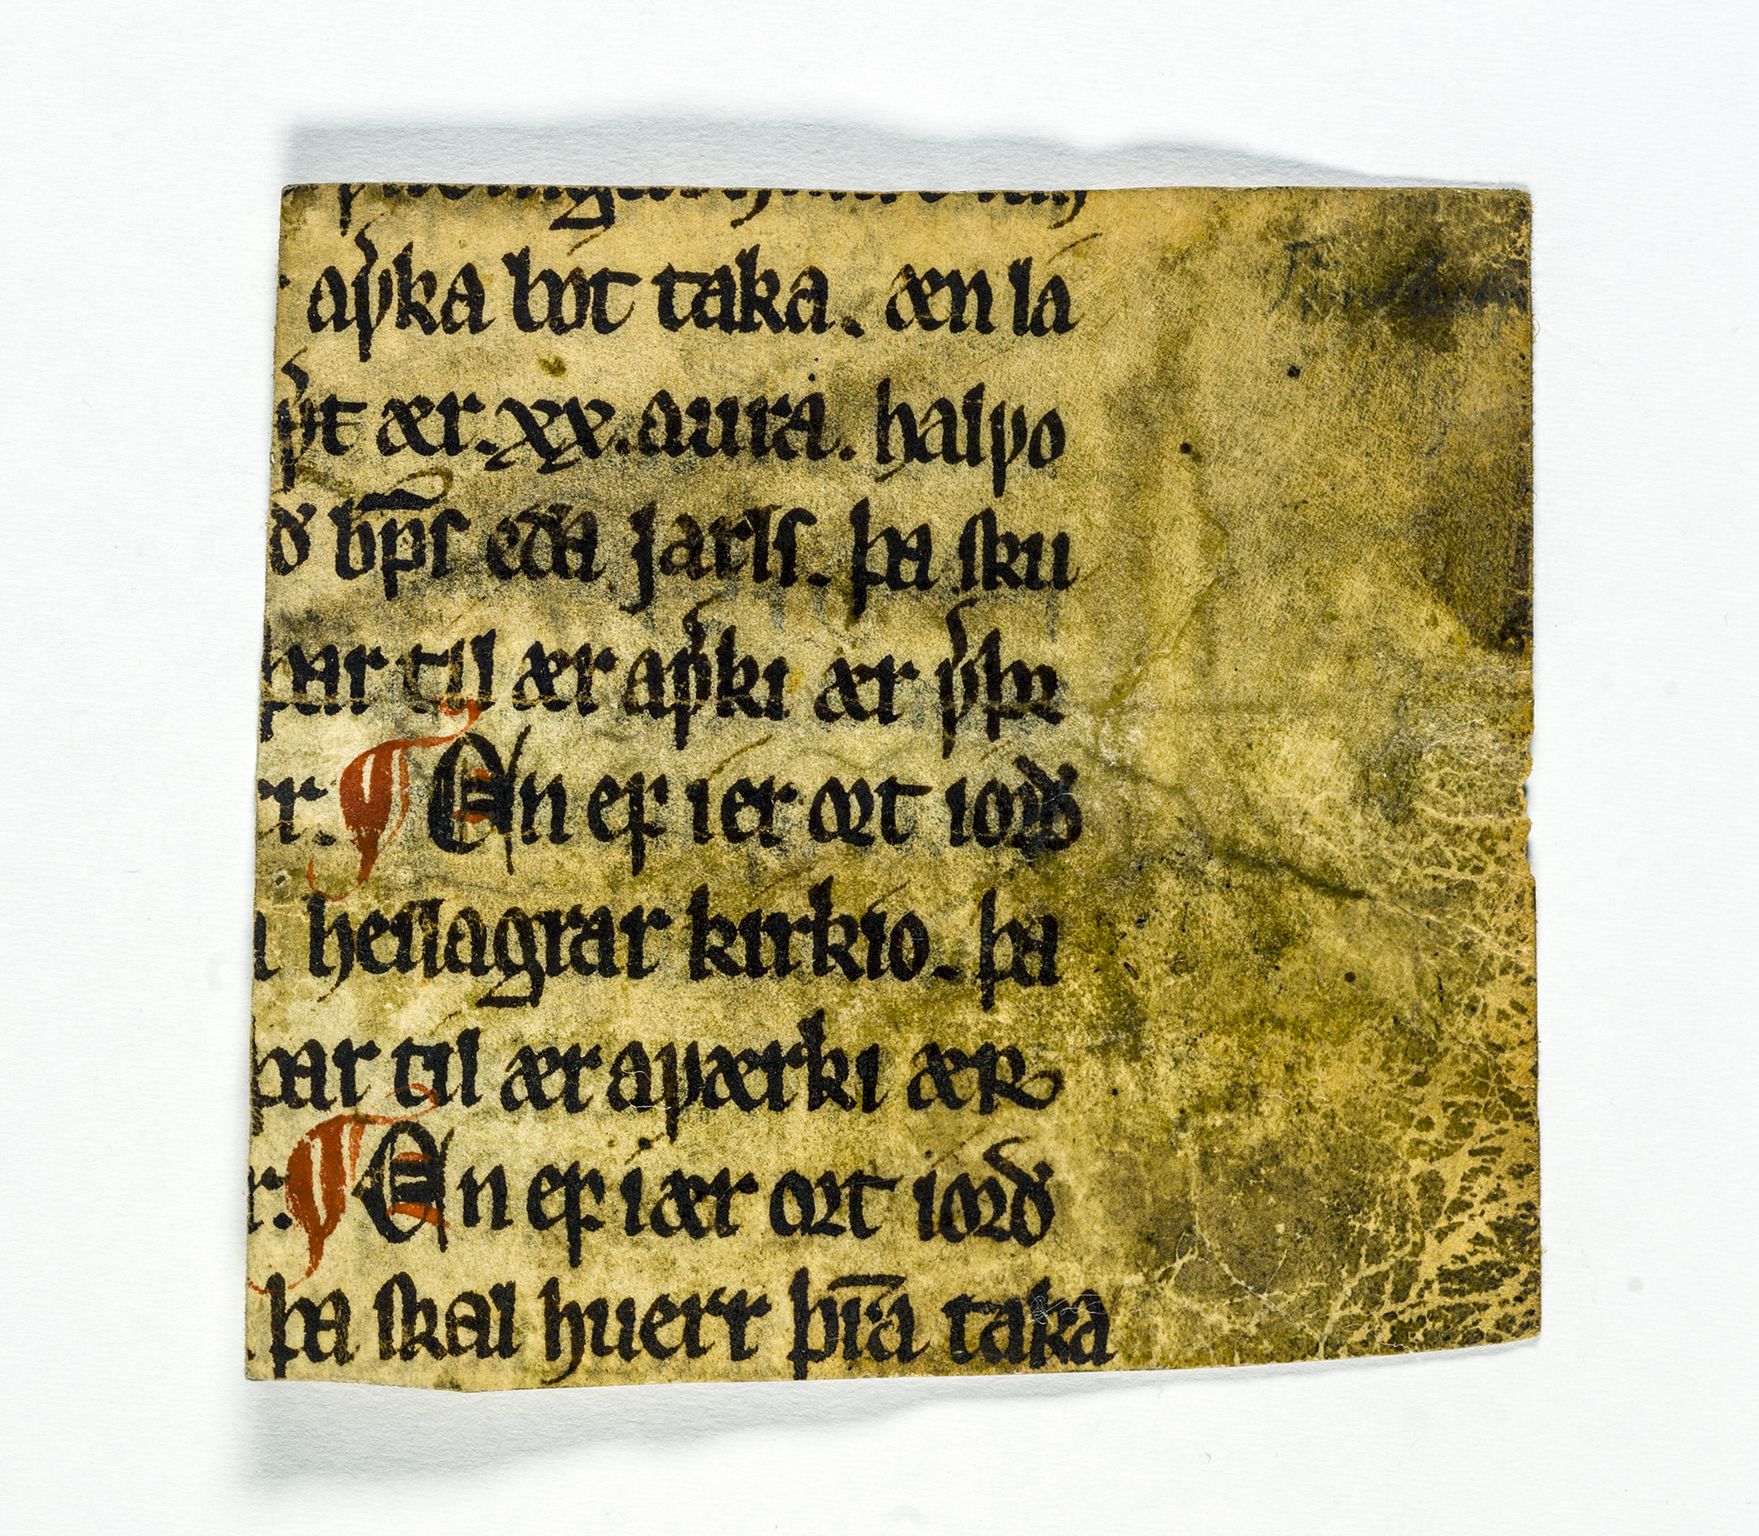 aꝩka bot taka. æn la
ꝩt ær .xx. aura. halꝩo
ð bꝑs eða jarls. þa sku
þar til ær aꝩki ær ꝩþꝛ
r. ¶ En eꝼ ier oꝛt ioꝛð
heilagrar kirkio. þa
þar til ær aꝩærki æR
r. ¶ En eꝼ iær oꝛt ioꝛð
þa skal huerr þr̄a taka